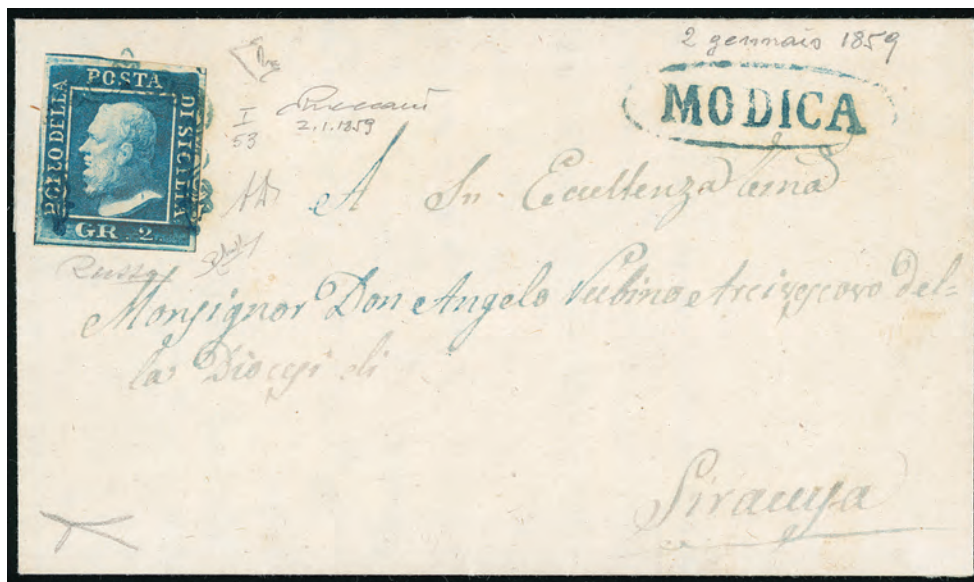 2 gennaio 1859
BOLLO DELLA
POSTA
DI SICILIA
GR. 2.
MODICA
I
53
2.1.1859
A Su Eccellenza
Russo
Monsignor Don Angelo Rubino Arcivescovo del=
la Diocesi di
Siracusa